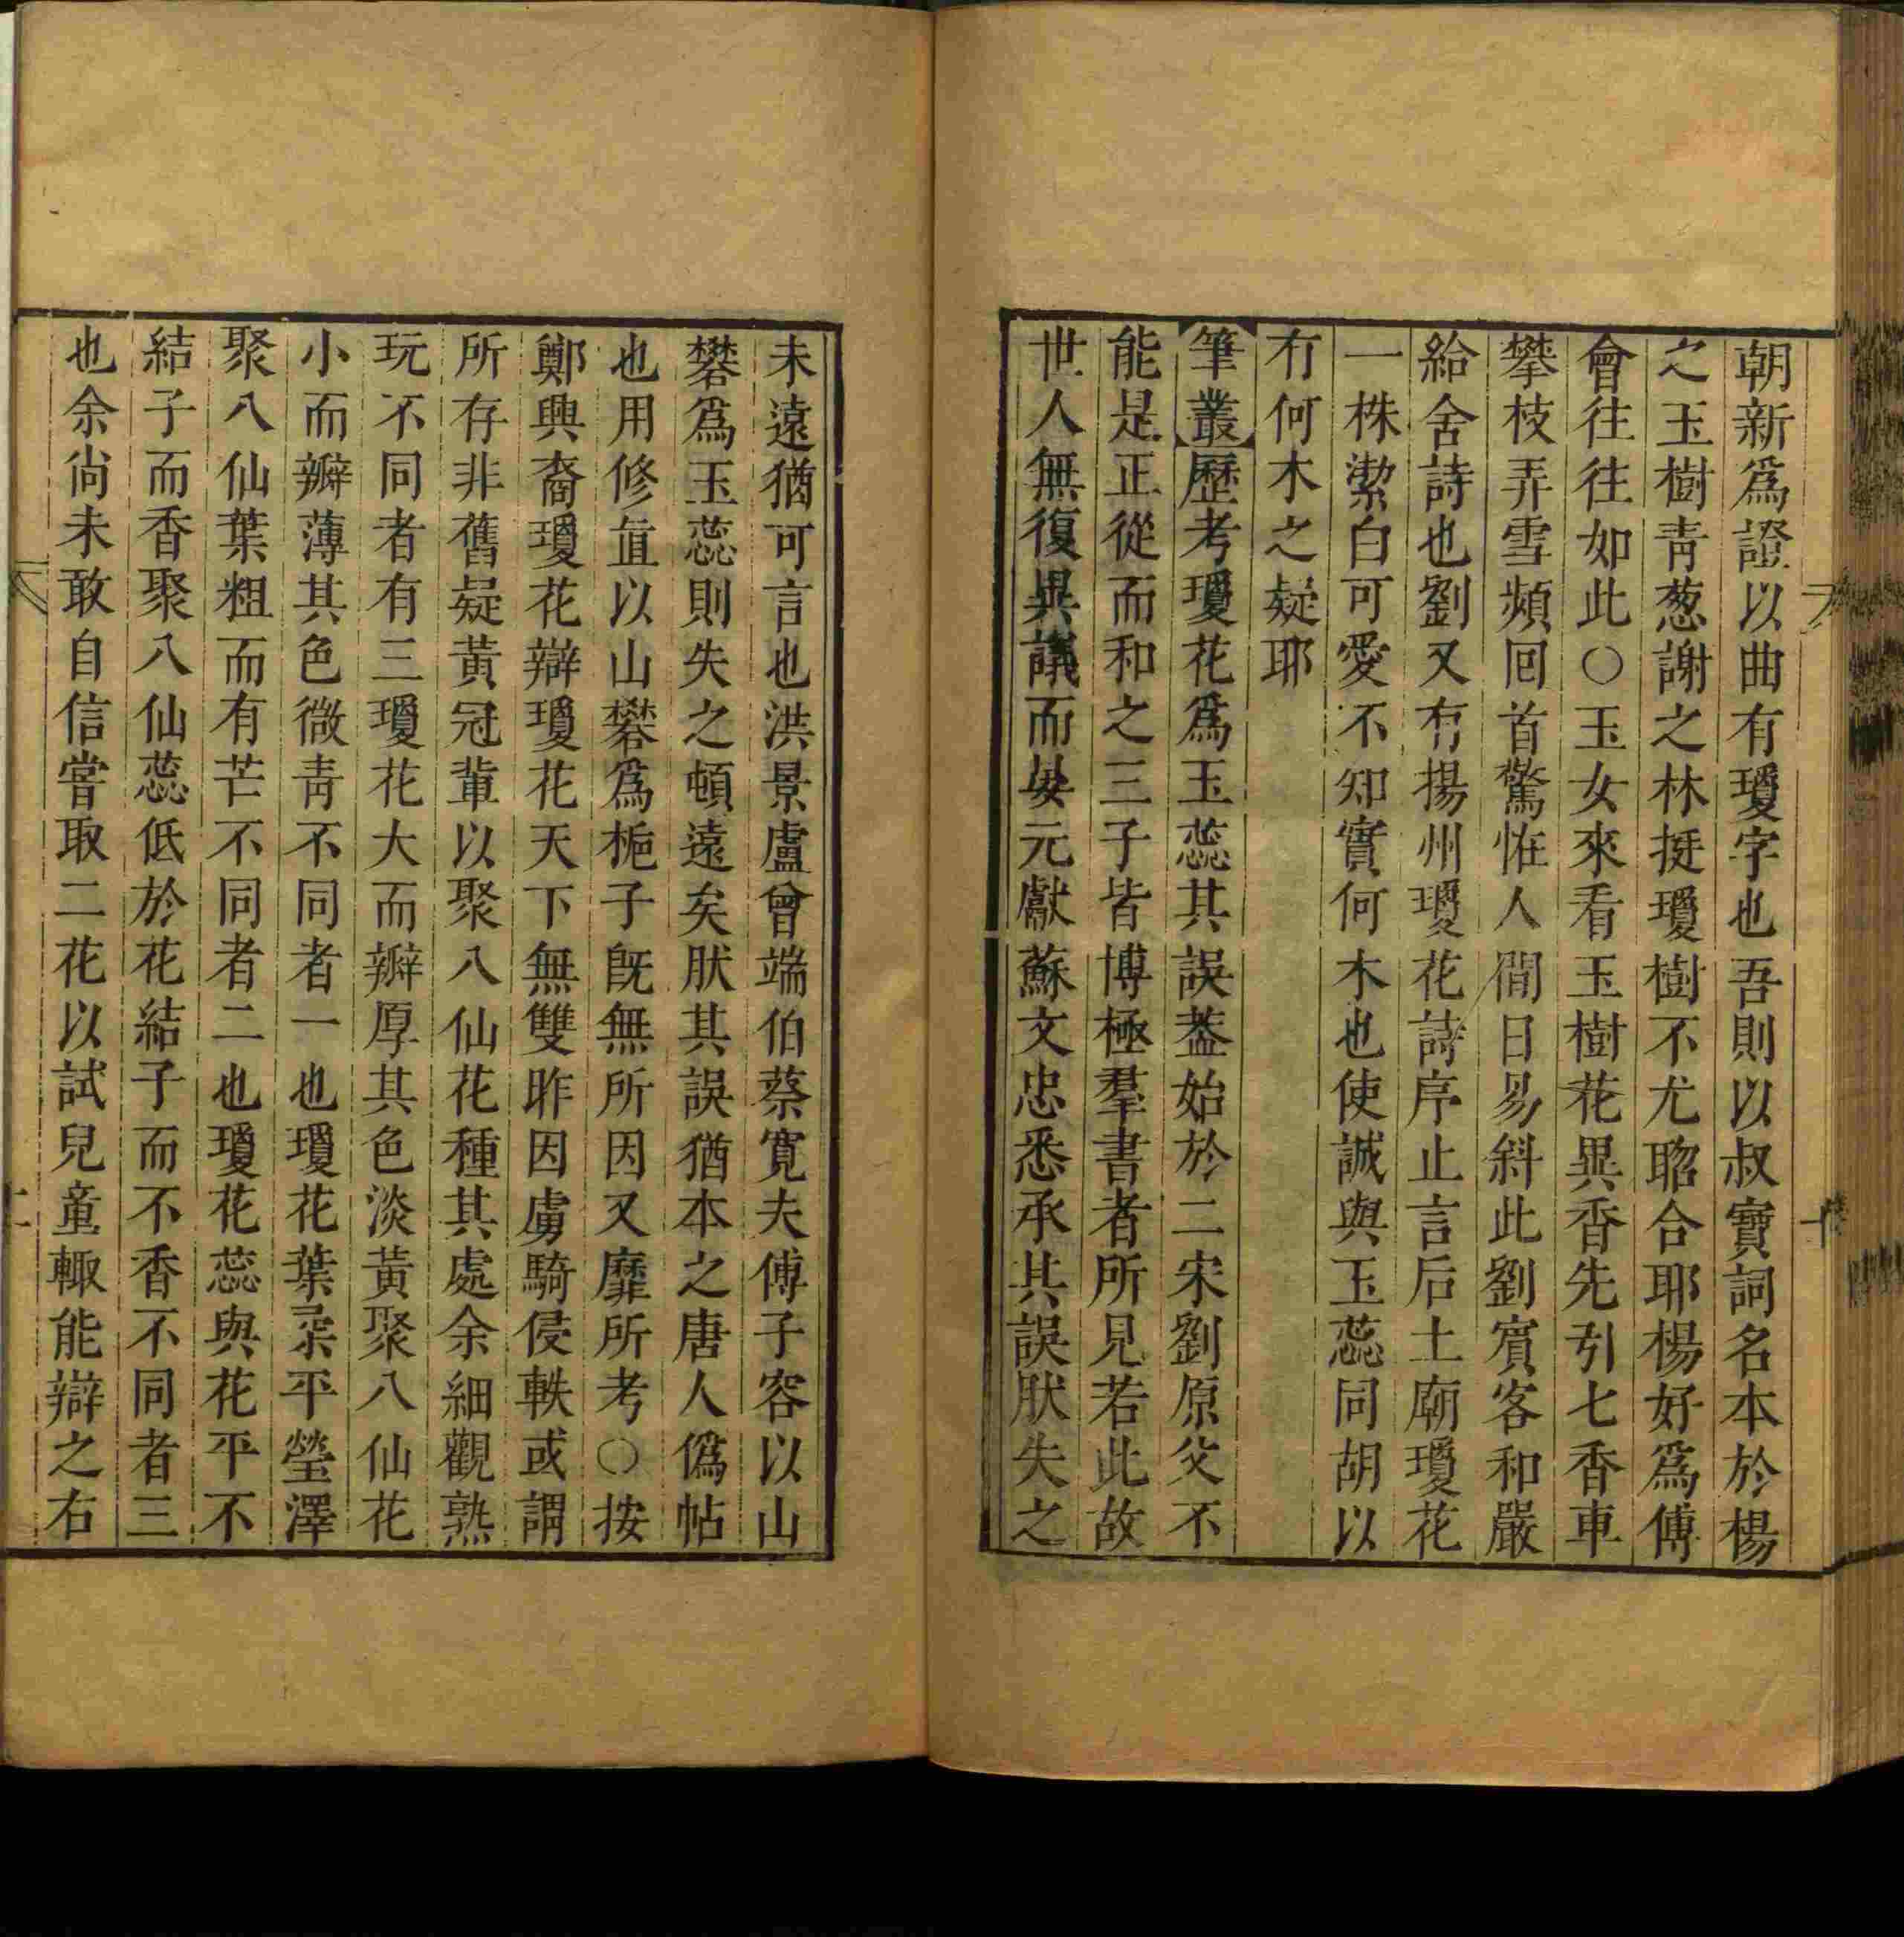 朝新爲證以曲有瓊字也吾則以叔寶詞名本於楊
之玉樹靑葱謝之林挺瓊樹不尤脗合耶楊好爲傅
會往往如此〇玉女來看玉樹花異香先引七香車
攀枝弄雪頻回首驚恠人間日易斜此劉賓客和嚴
給舍詩也劉又有揚州瓊花詩序止言后土廟瓊花
一株潔白可愛不知實何木也使誠與玉蕊同胡以
有何木之疑耶
筆叢歷考瓊花爲玉蕊其誤葢始於二宋劉原父不
能是正從而和之三子皆博極羣書者所見若此故
世人無復異議而晏元獻蘇文忠悉承其誤肰失之
未遠猶可言也洪景盧曾端伯蔡寛夫傅子容以山
礬爲玉蕊則失之頓遠矣肰其誤猶本之唐人僞帖
也用修直以山礬爲梔子旣無所因又靡所考〇按
鄭興裔瓊花辯瓊花天下無雙昨因虜騎侵軼或謂
所存非舊疑黃冠輩以聚八仙花種其處余細觀熟
玩不同者有三瓊花大而瓣厚其色淡黃聚八仙花
小而瓣薄其色微靑不同者一也瓊花葉柔平瑩澤
聚八仙葉粗而有芒不同者二也瓊花蕊與花平不
結子而香聚八仙蕊低於花結子而不香不同者三
也余尙未敢自信嘗取二花以試兒童輙能辯之右